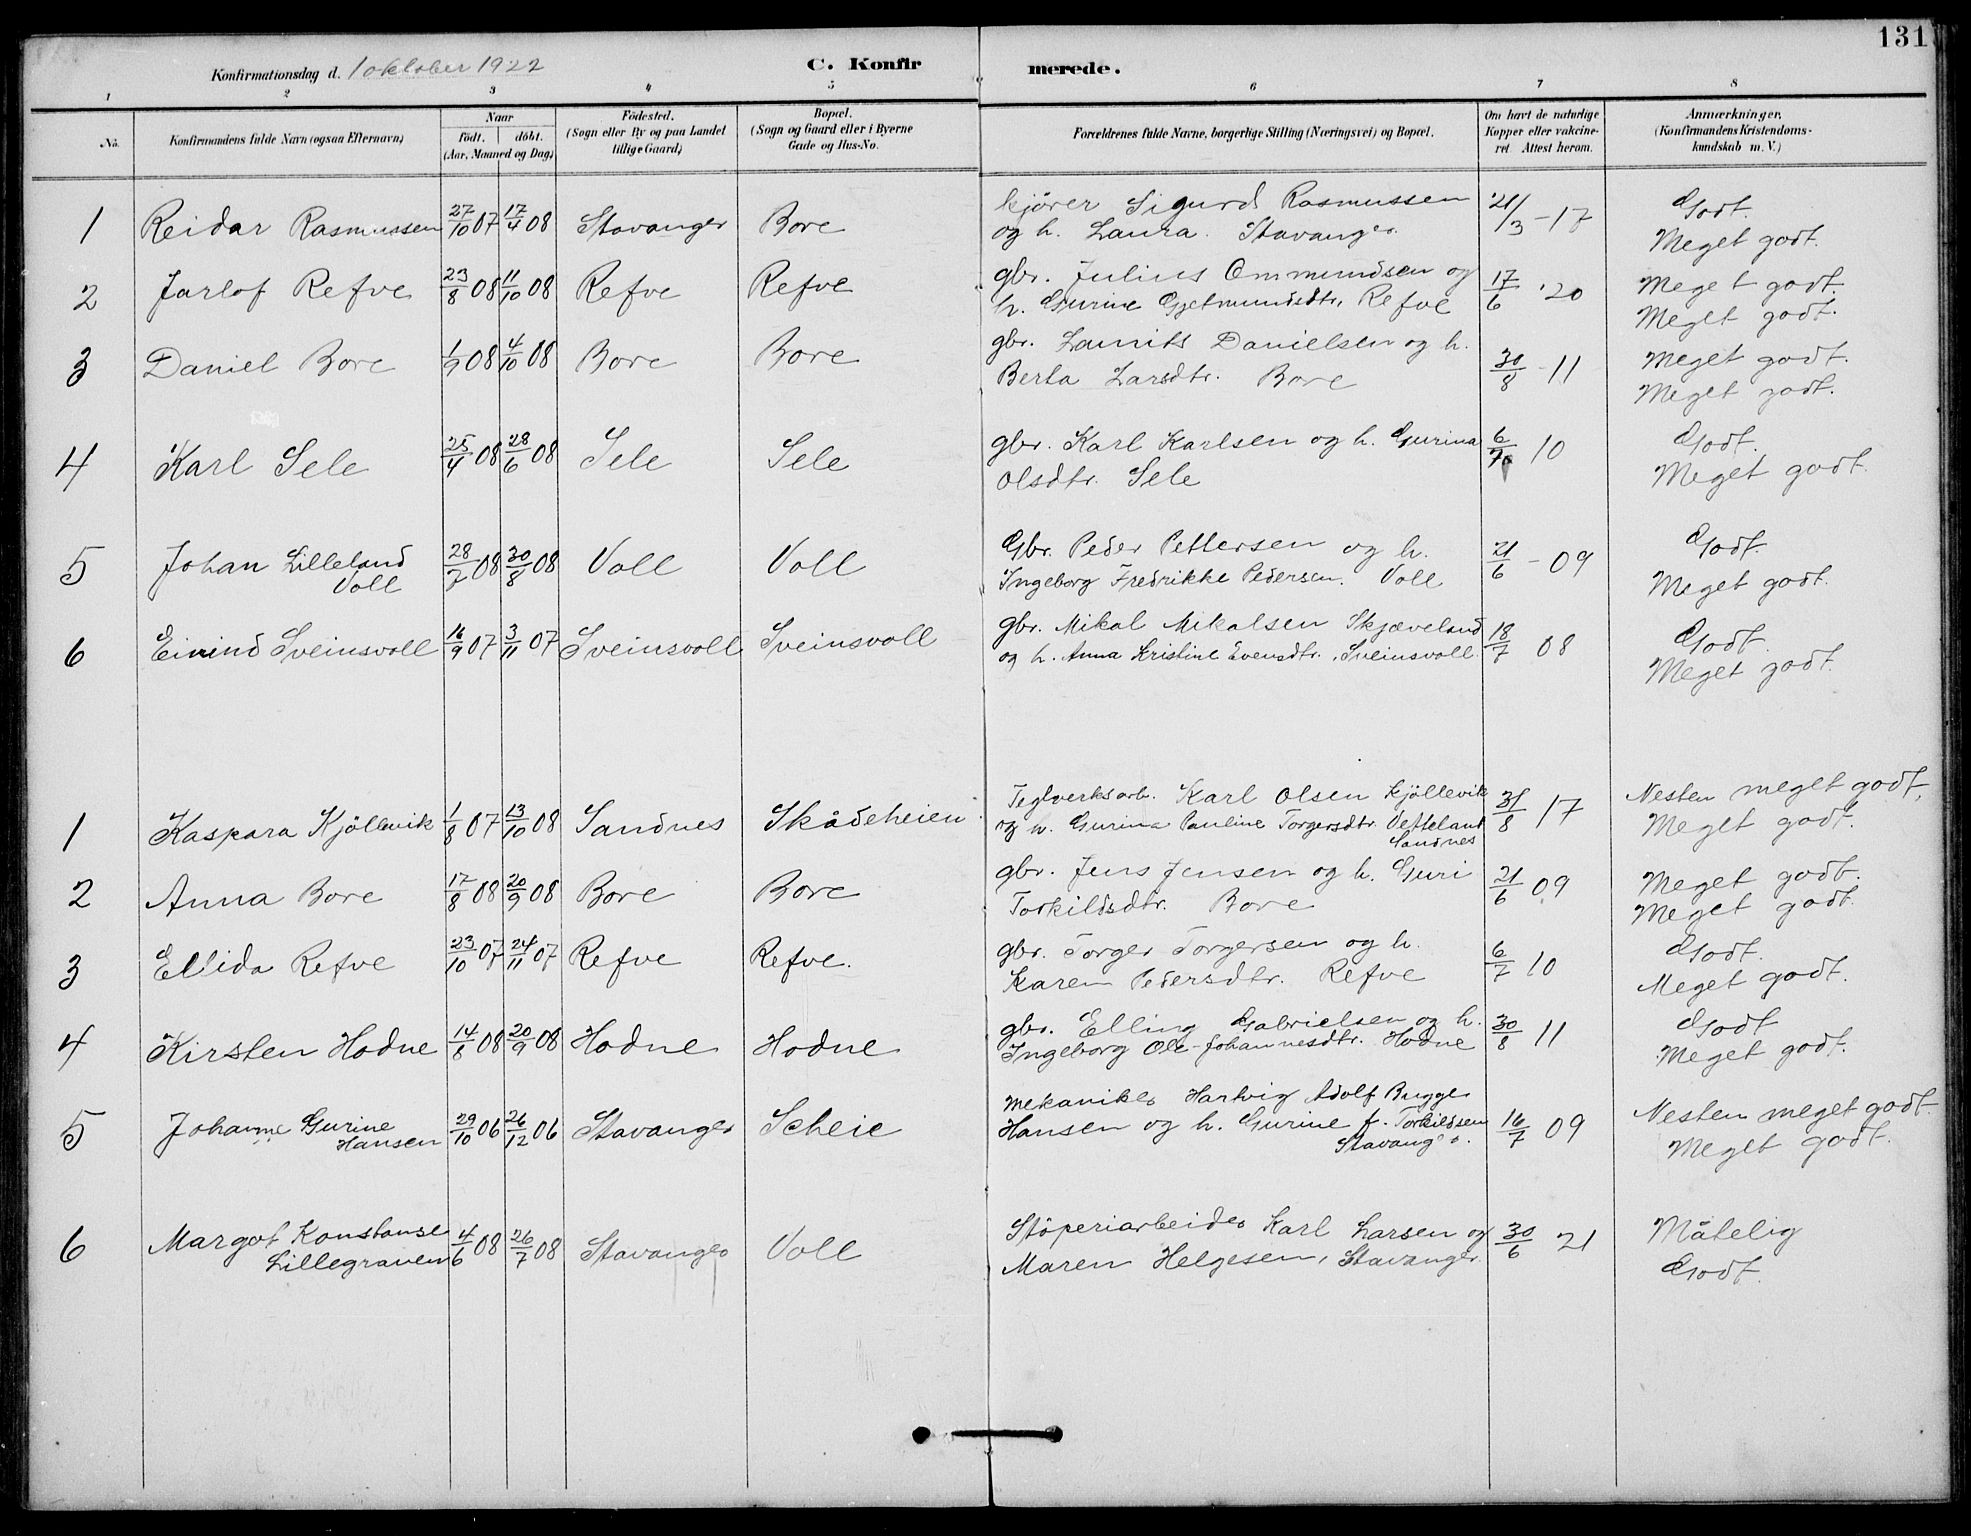 131
Konfirmationsdag d. 1 oktober 1922 C. Konfirmerede.
1 2 3 4 5 6 7 8
No. Konfirmandens fulde Navn (ogsaa Efternavn) Naar födt. döbt. (Aar, Maaned og Dag) Födested. (Sogn eller By og paa Landet tillige Gaard) Bopæl. (Sogn og Gaard eller i Byerne Gade og Hus-No. Forældrenes fulde Navne, borgerlige Stilling (Næringsvei) og Bopæl. Om havt de naturlige Kopper eller vakcineret. Attest herom. Anmærkninger. (Konfirmandens Kristendomskundskab m. V.)
1 Reidar Rasmussen 27/10 07 17/4 08 Stavanger Bore kjörer Sigurd Rasmussen 21/3 - 17 Godt.
og h. Laura. Stavanger. Meget godt.
2 Jarlof Refve 23/8 08 11/10 08 Refve Refve gbr. Julius Ommundsen og 17/6 '20 Meget godt.
h. Gurine Gjetmundsdtr, Refve Meget godt.
3 Daniel Bore 1/9 08 4/10 08 Bore Bore gbr. Laurits Danielsen og h. 30/8 - 11 Meget godt.
Berta Larsdtr. Bore Meget godt.
4 Karl Sele 25/4 08 28/6 08 Sele Sele gbr. Karl Karlsen og h. Gurina 6/7 10 Godt.
Olsdtr. Sele Meget godt.
5 Johan Lilleland 28/7 08 30/8 08 Voll Voll Gbr. Peder Pettersen og h. 21/6 - 09 Godt.
Voll Ingeborg Fredrikke Pedersen. Voll Meget godt.
6 Eivind Sveinsvoll 16/9 07 3/11 07 Sveinsvoll Sveinsvoll gbr. Mikal Mikalsen Skjæveland 18/7 08 Godt.
og h. Anna Kristine Evensdtr. Sveinsvoll. Meget godt.
1 Kaspara Kjöllevik 1/8 07 13/10 08 Sandnes Skådeheien Teglverksarb. Karl Olsen Kjöllevik 31/8 17 Nesten meget godt,
og h. Gurina Pauline Torgersdtr. Vetteland Meget godt.
Sandnes
2 Anna Bore 17/8 08 20/9 08 Bore Bore gbr. Jens Jensen og h. Guri 21/6 09 Meget godt.
Torkildsdtr. Bore Meget godt.
3 Ellida Refve 23/10 07 24/11 07 Refve Refve. gbr. Torger Torgersen og h. 6/7 10 Godt.
Karen Pedersdtr. Refve Meget godt.
4 Kirsten Hodne 14/8 08 20/9 08 Hodne Hodne gbr. Elling Gabrielsen og h. 30/8 11 Godt
Ingeborg Ole-Johannesdtr. Hodne Meget godt.
5 Johanne Gurine 29/10 06 26/12 06 Stavanger Scheie mekaniker Hartvig Adolf Bugge 16/7 09 Nesten meget godt.
Hansen Hansen og h. Gurine f. Torkildsen Meget godt.
Stavanger.
6 Margot Konstanse 4/6 08 26/7 08 Stavanger Voll Stöperiarbeider Karl Larsen og 30/6 21 Måtelig
Lillegraven Maren Helgesen, Stavanger. Godt.